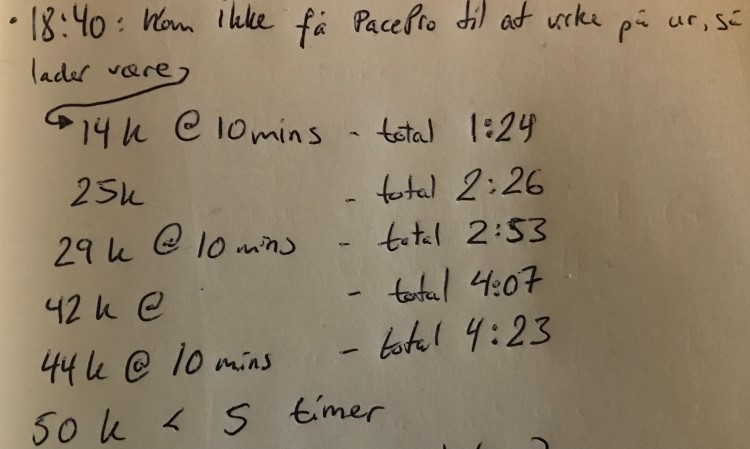 • 18:40: Kan ikke få PacePro til at virke på ur, så
lader være
14k @ 10 mins - total 1:24
25k - total 2:26
29k @ 10 mins - total 2:53
42k @ - total 4:07
44k @ 10 mins - total 4:23
50k < 5 timer